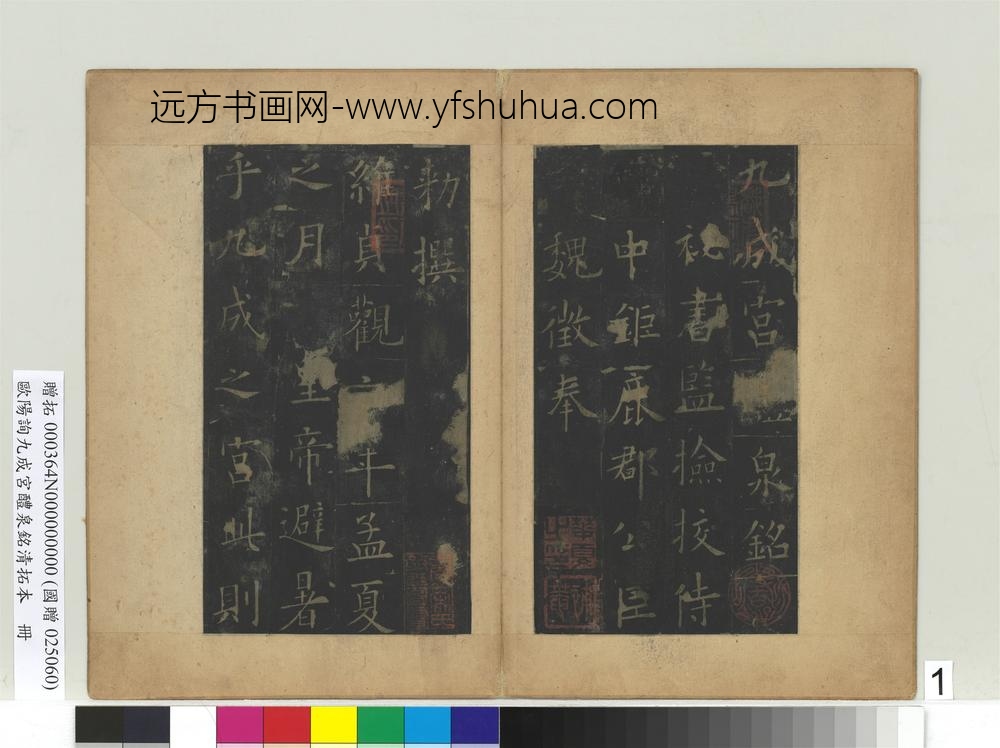 远方书画网-www.yfshuhua.com
九成宮泉銘
祕書監撿挍侍
中鉅鹿郡公臣
魏徵奉
勑撰
維貞觀年孟夏
之月皇帝避暑
乎九成之宮此則
贈拓 000364N000000000 (國贈 025060)
歐陽詢九成宮醴泉銘清拓本 冊
1